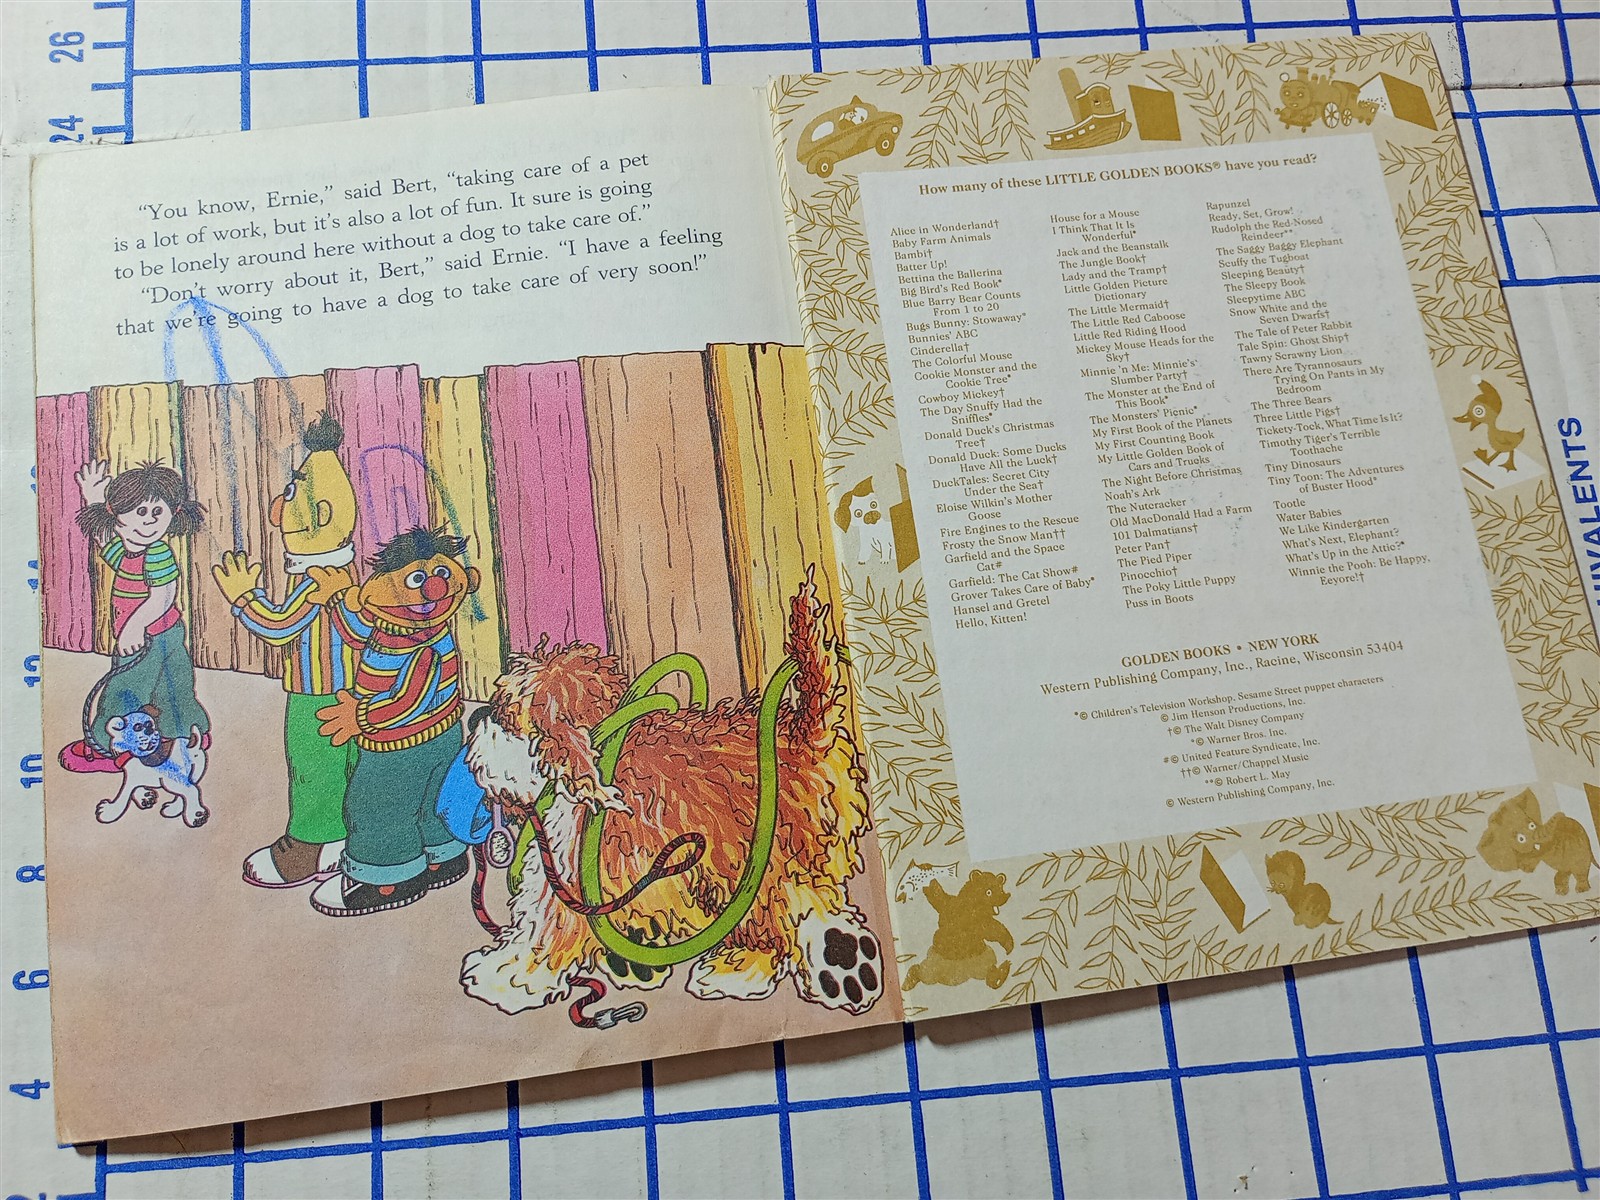 26
24
14
12
10
8
6
4
“You know, Ernie,” said Bert, “taking care of a pet
is a lot of work, but it’s also a lot of fun. It sure is going
to be lonely around here without a dog to take care of.”
“Don’t worry about it, Bert,” said Ernie. “I have a feeling
that we’re going to have a dog to take care of very soon!”
How many of these LITTLE GOLDEN BOOKS® have you read?
Alice in Wonderland†
Baby Farm Animals
Bambi†
Batter Up!
Bettina the Ballerina
Big Bird's Red Book*
Blue Barry Bear Counts
From 1 to 20
Bugs Bunny: Stowaway*
Bunnies' ABC
Cinderella†
The Colorful Mouse
Cookie Monster and the
Cookie Tree*
Cowboy Mickey†
The Day Snuffy Had the
Sniffles*
Donald Duck's Christmas
Tree†
Donald Duck: Some Ducks
Have All the Luck†
DuckTales: Secret City
Under the Sea†
Eloise Wilkin's Mother
Goose
Fire Engines to the Rescue
Frosty the Snow Man††
Garfield and the Space
Cat#
Garfield: The Cat Show#
Grover Takes Care of Baby*
Hansel and Gretel
Hello, Kitten!
House for a Mouse
I Think That It Is
Wonderful*
Jack and the Beanstalk
The Jungle Book†
Lady and the Tramp†
Little Golden Picture
Dictionary
The Little Mermaid†
The Little Red Caboose
Little Red Riding Hood
Mickey Mouse Heads for the
Sky†
Minnie 'n Me: Minnie's
Slumber Party†
The Monster at the End of
This Book*
The Monsters' Picnic*
My First Book of the Planets
My First Counting Book
My Little Golden Book of
Cars and Trucks
The Night Before Christmas
Noah's Ark
The Nutcracker
Old MacDonald Had a Farm
101 Dalmatians†
Peter Pan†
The Pied Piper
Pinocchio†
The Poky Little Puppy
Puss in Boots
Rapunzel
Ready, Set, Grow!
Rudolph the Red-Nosed
Reindeer**
The Saggy Baggy Elephant
Scuffy the Tugboat
Sleeping Beauty†
The Sleepy Book
Sleepytime ABC
Snow White and the
Seven Dwarfs†
The Tale of Peter Rabbit
Tale Spin: Ghost Ship†
Tawny Scrawny Lion
There Are Tyrannosaurs
Trying On Pants in My
Bedroom
The Three Bears
Three Little Pigs†
Tickety-Tock, What Time Is It?
Timothy Tiger's Terrible
Toothache
Tiny Dinosaurs
Tiny Toon: The Adventures
of Buster Hood*
Tootle
Water Babies
We Like Kindergarten
What's Next, Elephant?
What's Up in the Attic?*
Winnie the Pooh: Be Happy,
Eeyore!†
GOLDEN BOOKS • NEW YORK
Western Publishing Company, Inc., Racine, Wisconsin 53404
*© Children's Television Workshop. Sesame Street puppet characters
© Jim Henson Productions, Inc.
†© The Walt Disney Company
*© Warner Bros. Inc.
#© United Feature Syndicate, Inc.
††© Warner/Chappel Music
**© Robert L. May
© Western Publishing Company, Inc.